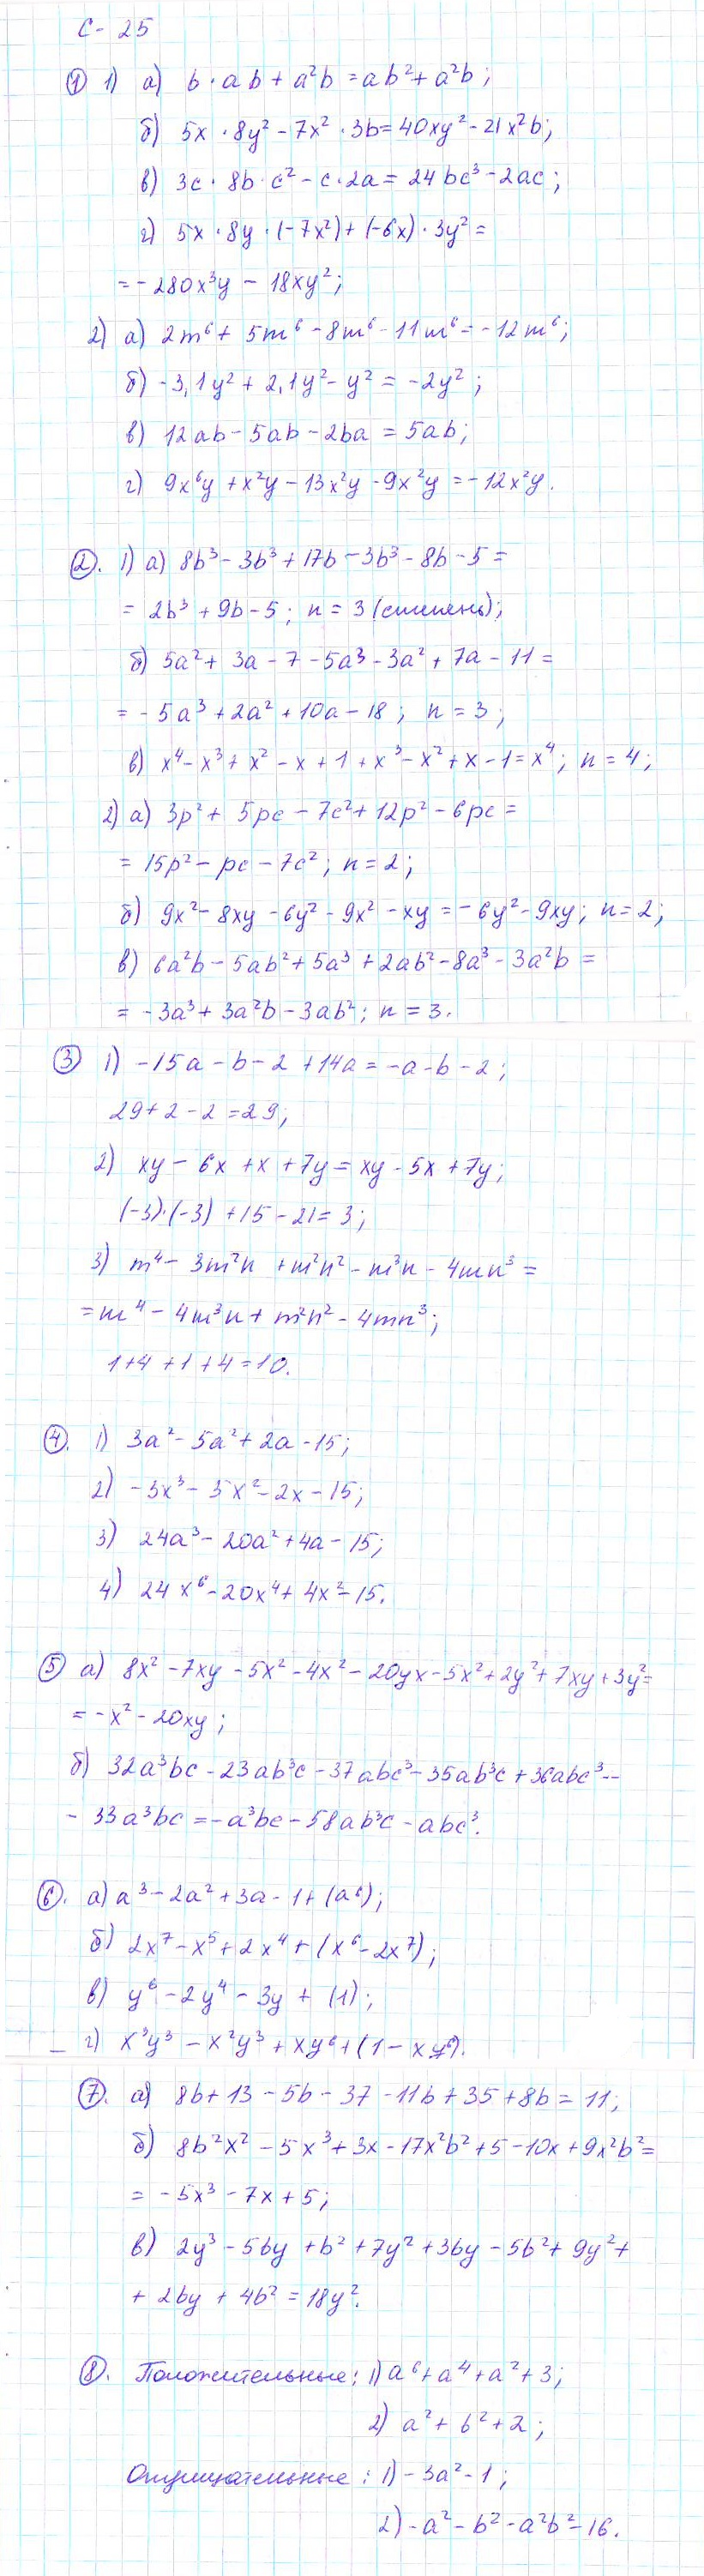 С-25
① 1) а) b·ab + a²b = ab² + a²b;
б) 5x·8y² - 7x²·3b = 40xy² - 21x²b;
в) 3c·8b·c² - c·2a = 24bc³ - 2ac;
г) 5x·8y·(-7x²) + (-6x)·3y² =
= -280x³y - 18xy²;
2) а) 2m⁶ + 5m⁶ - 8m⁶ - 11m⁶ = -12m⁶;
б) -3,1y² + 2,1y² - y² = -2y²;
в) 12ab - 5ab - 2ba = 5ab;
г) 9x⁶y + x²y - 13x²y - 9x²y = -12x²y.
②. 1) а) 8b³ - 3b³ + 17b - 3b³ - 8b - 5 =
= 2b³ + 9b - 5; n = 3 (степень);
б) 5a² + 3a - 7 - 5a³ - 3a² + 7a - 11 =
= -5a³ + 2a² + 10a - 18; n = 3;
в) x⁴ - x³ + x² - x + 1 + x³ - x² + x - 1 = x⁴; n = 4;
2) а) 3p² + 5pc - 7c² + 12p² - 6pc =
= 15p² - pc - 7c²; n = 2;
б) 9x² - 8xy - 6y² - 9x² - xy = -6y² - 9xy; n = 2;
в) 6a²b - 5ab² + 5a³ + 2ab² - 8a³ - 3a²b =
= -3a³ + 3a²b - 3ab²; n = 3.
③ 1) -15a - b - 2 + 14a = -a - b - 2;
29 + 2 - 2 = 29;
2) xy - 6x + x + 7y = xy - 5x + 7y;
(-3)·(-3) + 15 - 21 = 3;
3) m⁴ - 3m²n + m²n² - m³n - 4mn³ =
= m⁴ - 4m³n + m²n² - 4mn³;
1 + 4 + 1 + 4 = 10.
④. 1) 3a² - 5a² + 2a - 15;
2) -3x³ - 5x² - 2x - 15;
3) 24a³ - 20a² + 4a - 15;
4) 24x⁶ - 20x⁴ + 4x² - 15.
⑤ а) 8x² - 7xy - 5x² - 4x² - 20yx - 5x² + 2y² + 7xy + 3y² =
= -x² - 20xy;
б) 32a³bc - 23ab³c - 37abc³ - 35ab³c + 36abc³ -
- 33a³bc = -a³bc - 58ab³c - abc³.
⑥. а) a³ - 2a² + 3a - 1 + (a⁶);
б) 2x⁷ - x⁵ + 2x⁴ + (x⁶ - 2x⁷);
в) y⁶ - 2y⁴ - 3y + (1);
г) x³y³ - x²y³ + xy⁶ + (1 - xy⁶).
⑦. а) 8b + 13 - 5b - 37 - 11b + 35 + 8b = 11;
б) 8b²x² - 5x³ + 3x - 17x²b² + 5 - 10x + 9x²b² =
= -5x³ - 7x + 5;
в) 2y³ - 5by + b² + 7y² + 3by - 5b² + 9y² +
+ 2by + 4b² = 18y².
⑧. Положительные: 1) a⁶ + a⁴ + a² + 3;
2) a² + b² + 2;
Отрицательные: 1) -3a² - 1;
2) -a² - b² - a²b² - 16.